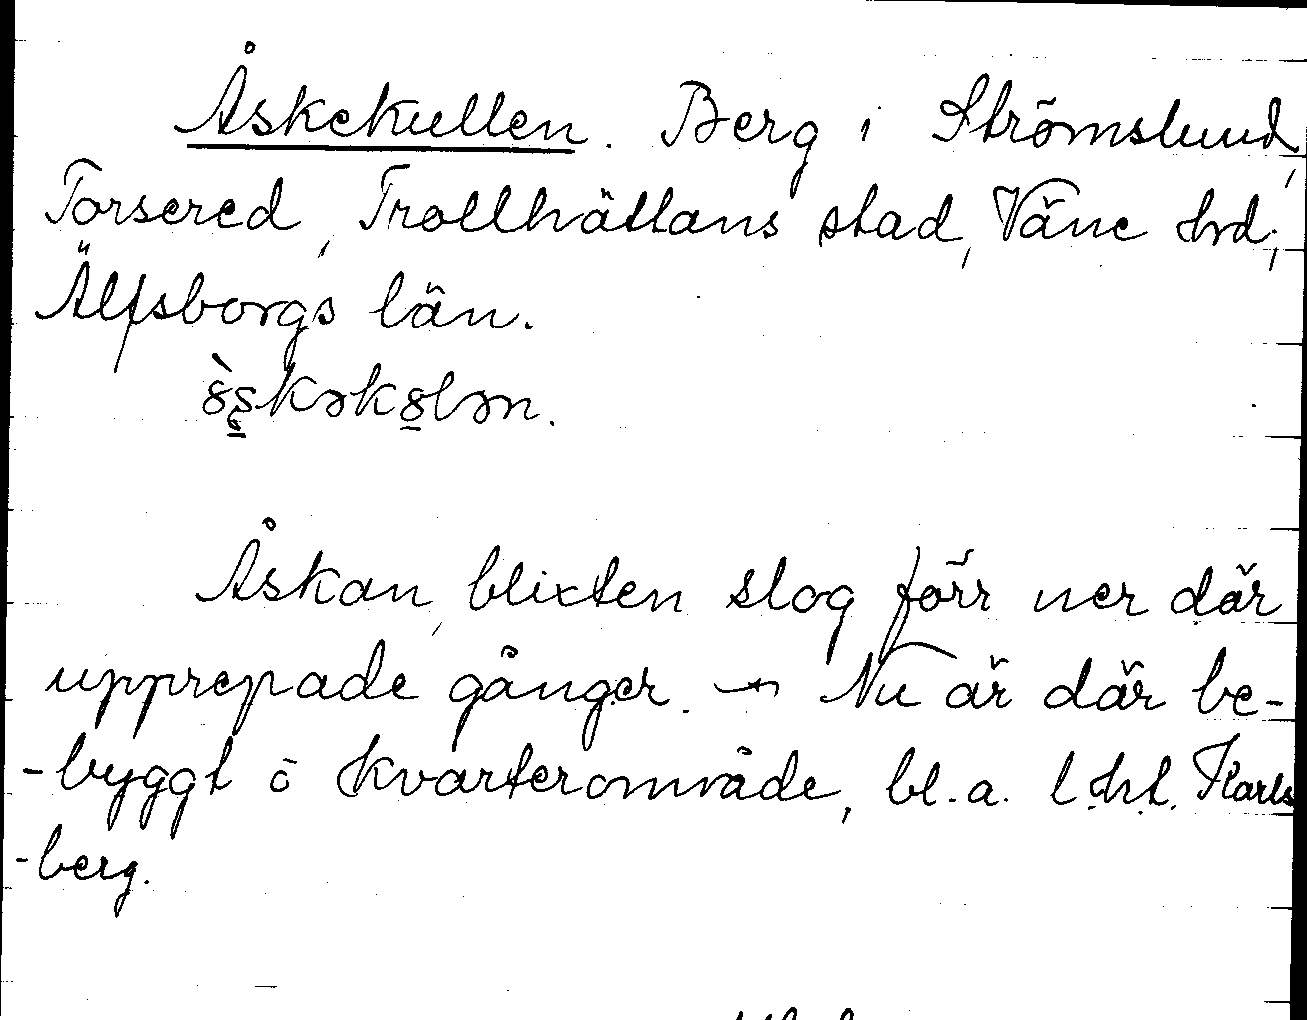 Åskekullen. Berg i Strömslund,
Torsered, Trollhättans stad, Väne hrd,
Älfsborgs län.
Åskan, blixten slog förr ner där
upprepade gånger. Nu är där be-
-byggt o kvarterområde, bl.a. Karls
-berg.